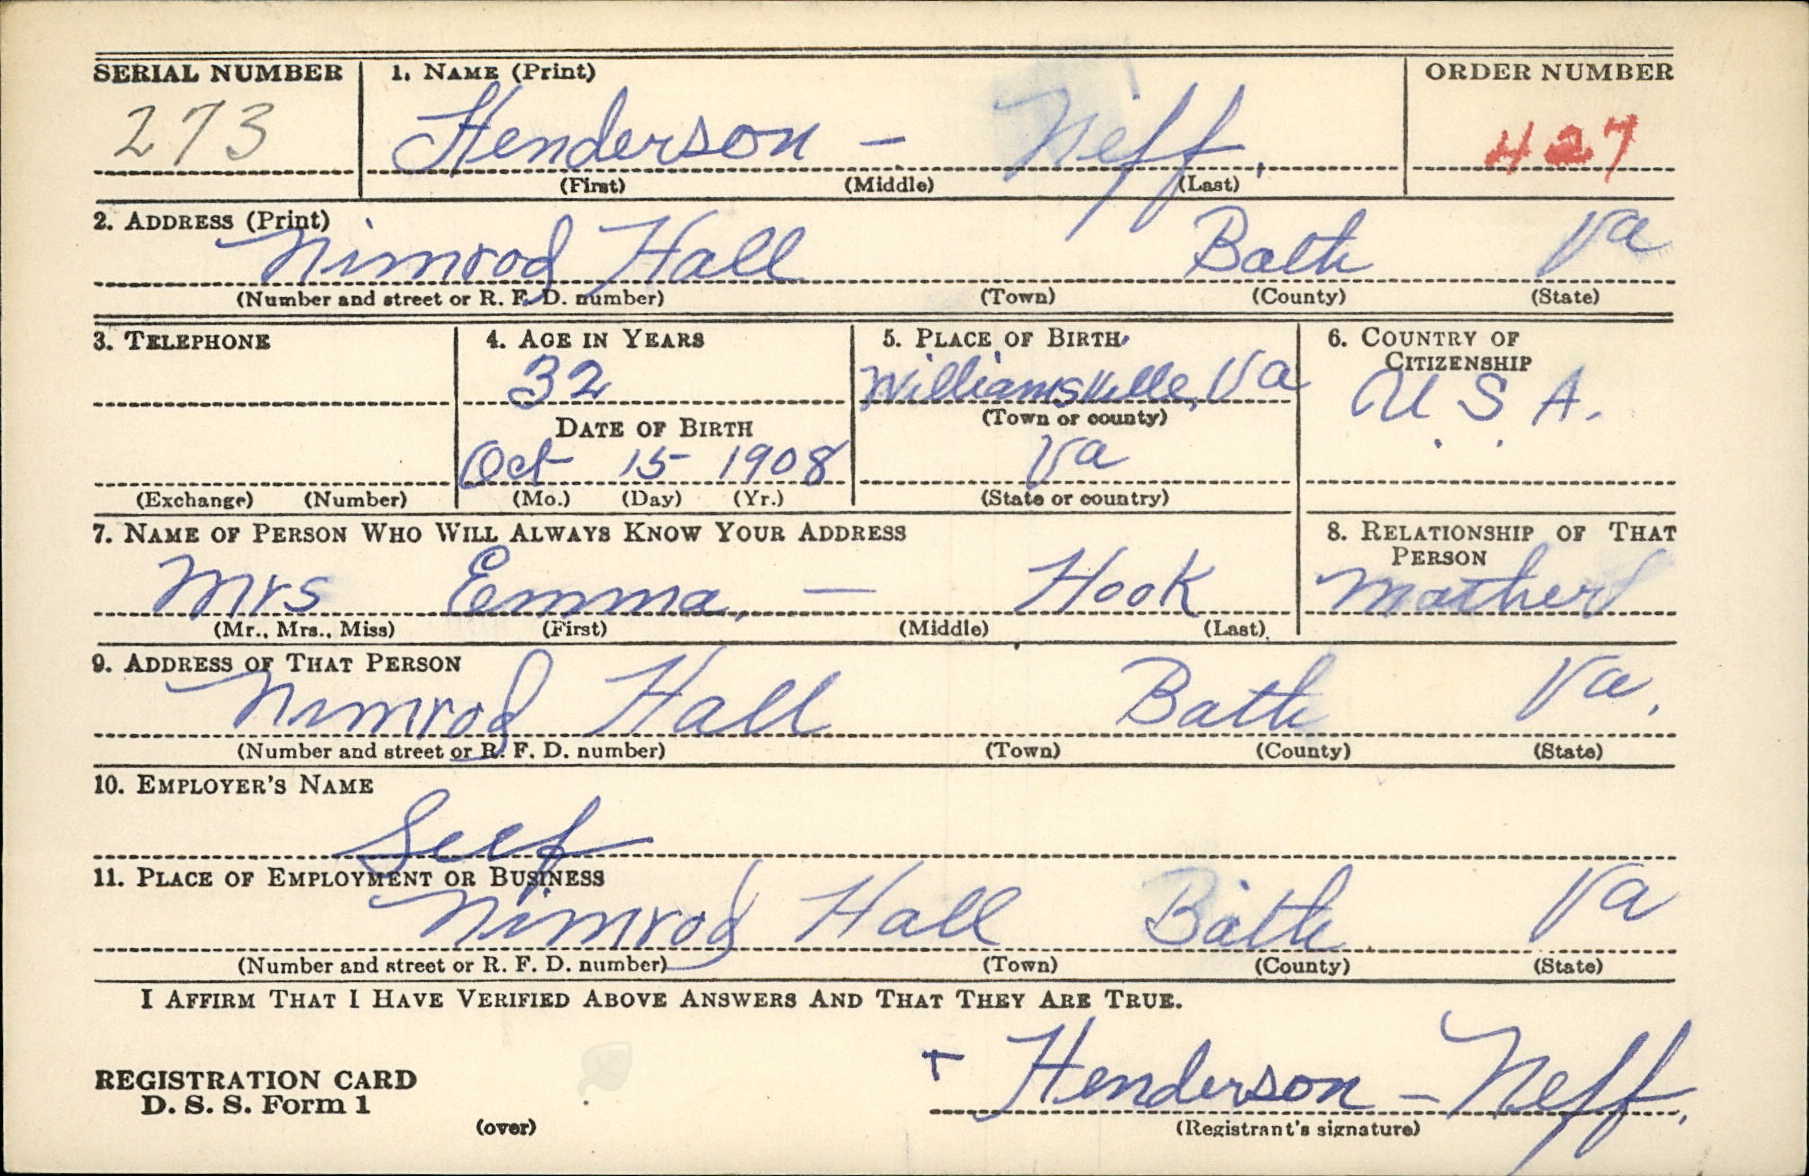 SERIAL NUMBER 1. NAME (Print) ORDER NUMBER
273 Henderson - Neff, 427
(First) (Middle) (Last)
2. ADDRESS (Print)
Nimrod Hall Bath Va
(Number and street or R. F. D. number) (Town) (County) (State)
3. TELEPHONE 4. AGE IN YEARS 5. PLACE OF BIRTH 6. COUNTRY OF CITIZENSHIP
32 Williamsville, Va U S A.
DATE OF BIRTH (Town or county)
Oct 15 1908 Va
(Exchange) (Number) (Mo.) (Day) (Yr.) (State or country)
7. NAME OF PERSON WHO WILL ALWAYS KNOW YOUR ADDRESS 8. RELATIONSHIP OF THAT PERSON
Mrs Emma, — Hook Mother
(Mr., Mrs., Miss) (First) (Middle) (Last)
9. ADDRESS OF THAT PERSON
Nimrod Hall Bath Va.
(Number and street or R. F. D. number) (Town) (County) (State)
10. EMPLOYER'S NAME
Self
11. PLACE OF EMPLOYMENT OR BUSINESS
Nimrod Hall Bath Va
(Number and street or R. F. D. number) (Town) (County) (State)
I AFFIRM THAT I HAVE VERIFIED ABOVE ANSWERS AND THAT THEY ARE TRUE.
REGISTRATION CARD
D. S. S. Form 1
(over)
+ Henderson - Neff.
(Registrant's signature)